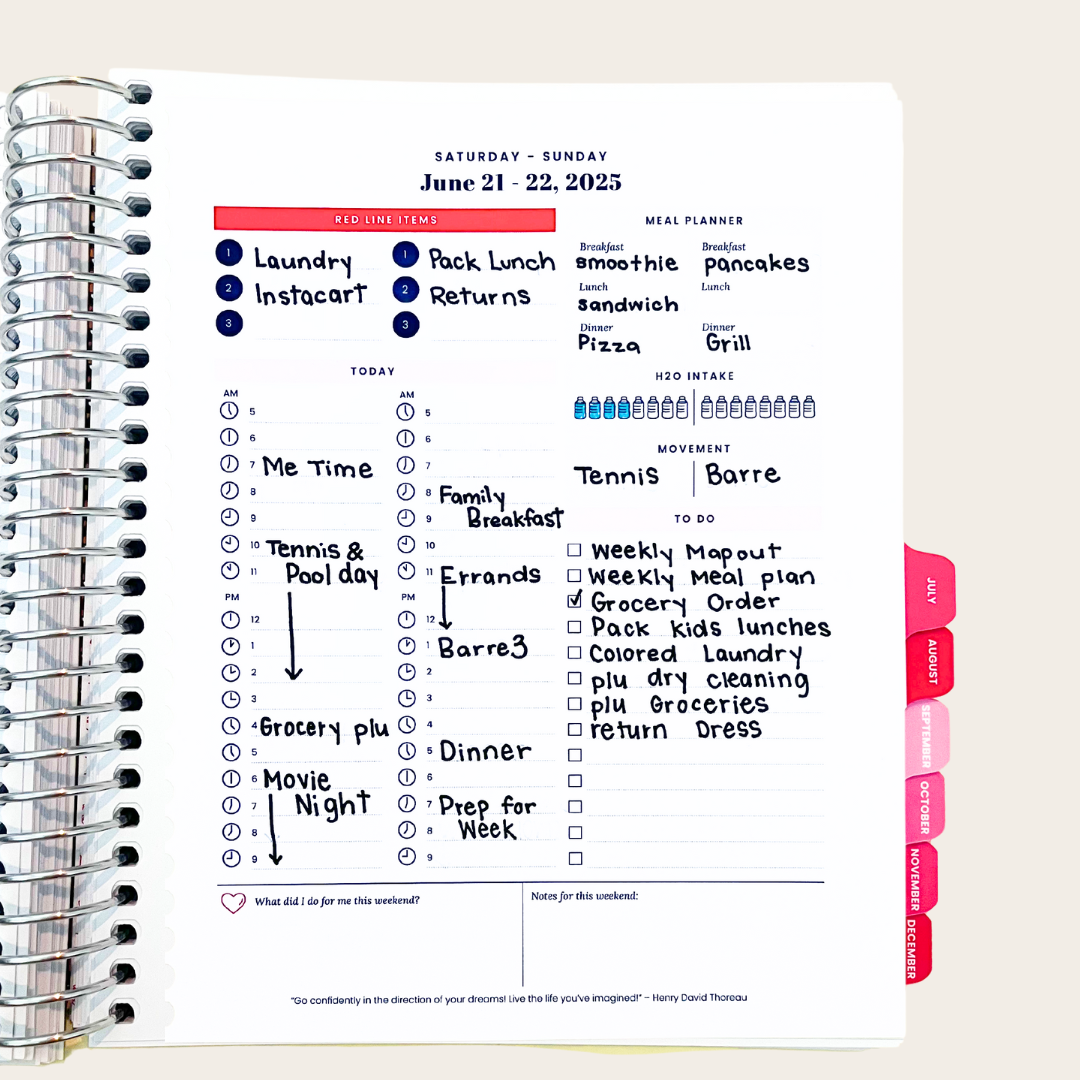 SATURDAY - SUNDAY
June 21 - 22, 2025
RED LINE ITEMS
1 Laundry
2 Instacart
3
1 Pack Lunch
2 Returns
3
TODAY
AM
5
6
7 Me Time
8
9
10 Tennis &
11 Pool day
PM
12
1
2
3
4 Grocery plu
5
6 Movie
7 Night
8
9
AM
5
6
7
8 Family
9 Breakfast
10
11 Errands
PM
12
1 Barre3
2
3
4
5 Dinner
6
7 Prep for
8 Week
9
MEAL PLANNER
Breakfast
smoothie
Lunch
sandwich
Dinner
Pizza
Breakfast
pancakes
Lunch
Dinner
Grill
H2O INTAKE
MOVEMENT
Tennis
Barre
TO DO
Weekly Mapout
Weekly Meal plan
Grocery Order
Pack kids lunches
Colored Laundry
plu dry cleaning
plu Groceries
return Dress
What did I do for me this weekend?
Notes for this weekend:
"Go confidently in the direction of your dreams! Live the life you've imagined!" - Henry David Thoreau
JULY
AUGUST
SEPTEMBER
OCTOBER
NOVEMBER
DECEMBER